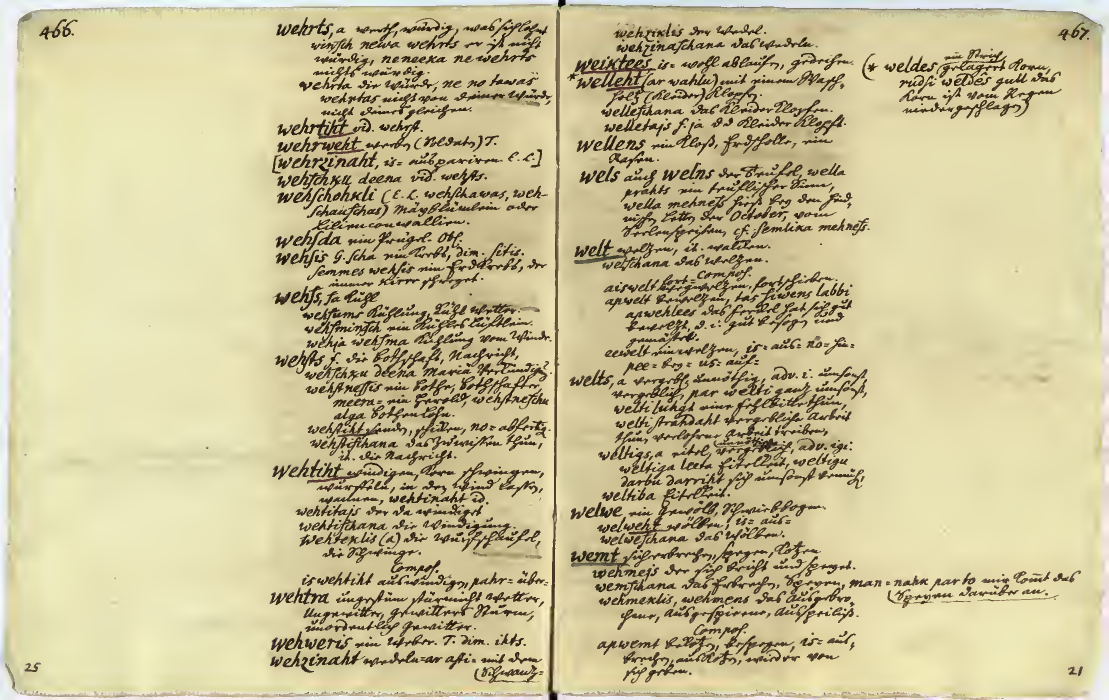 466.
wehrts, a werth, würdig, was sich lohnt
winsch newa wehrts er ist nicht
würdig, neneeka ne wehrts
nichts würdig.
wehrta die Würde, ne no tawas
wehrtas nicht von deiner Würde,
nicht deines gleichen.
wehrtiht vid. wehrst.
wehrweht werben (Soldaten) T.
[wehrzinaht, is= auspariren. E. L.]
wehschku deena vid. wehsts.
wehschohkli (E. L. wehschawas, weh-
schauschas) Mäyblümlein oder
Lilienconvallien.
wehsda ein Prügel. Obl.
wehsis G. scha ein Krebs, dim. sitis.
semmes wehsis ein Erdkrebs, der
immer schreyet.
wehss, sa kühl
wehsums Kühlung, kühl Wetter.
wehsminsch ein kühles Lüftlein.
wehja wehsma Kühlung vom Winde.
wehsts f. die Bothschaft, Nachricht,
wehschku deena Maria Verkündig.
wehstnessis ein Bothe, Bothschafter,
meera= ein Herold, wehstneschu
alga Bothenlohn.
wehstiht senden, schicken, no= abfertig.
wehstischana das Zuwissen thun,
it. die Nachricht.
wehtiht windigen, Korn schwingen,
würffeln, in den Wind lassen,
wannen, wehtinaht id.
wehtitajs der da windiget
wehtischana die Windigung.
wehteklis (a) die Wurfschaufel,
die Schwinge.
Compos.
iswehtiht auswindigen, pahr= über=
wehtra ungestüm stürmicht Wetter,
Ungewitter, Gewitters Sturm,
unordentlich Gewitter.
wehweris ein Weber. T. dim. ihts.
wehzinaht wedeln=ar asti= mit dem
(Schwantz=
25
467.
wehziklis der Wedel.
wehzinaschana das Wedeln.
weiktees is= wohl ablaufen, gedeihen.
* welleht (ar wahlu) mit einem Wasch-
holz (Kleider) klopfen.
welleschana das Kleider klopfen.
welletajs f. ja der Kleider klopft.
wellens ein Kloß, Erdscholle, ein
Rasen.
wels auch welns der Teufel, wella
prahts ein teuflischer Sinn,
wella mehness hieß bey den heid-
nischen Letten der October, vom
Seelenspeisen, cf. semlika mehness.
welt welzen, it. walken.
welschana das welzen.
Compos.
aiswelt fortwelzen, fortschieben.
apwelt bewelzen, tas siwens labbi
apwehlees das Ferkel hat sich gut
bewelzt, d. i. gut besogen und
gemästet.
eewelt einwelzen, is= aus= no= hin=
pee= bey= us= auf=
welts, a vergebl. unnöthig, adv. i. umsonst,
vergeblich, par welti ganz umsonst,
welti luhgt eine Fehlbitte thun,
welti strahdaht vergebliche Arbeit
thun, verlohrne Arbeit treiben,
weltigs, a eitel, vergeblich, adv. igi.
weltiga leeta Eitelkeit, weltigu
darbu darriht sich umsonst bemüh.
weltiba Eitelkeit.
welwe ein Gewölb, Schwiebbogen.
welweht wölben, is= aus=
welweschana das Wölben.
wemt sich erbrechen, speyen, kotzen.
wehmejs der sich bricht und speyet.
wemschana das Erbrechen, Speyen, man=nahk par to mir komt das
(Speyen darüber an.
wehmeklis, wehmens das Ausgebro-
chene, Ausgespiene,
Compos.
apwemt bekotzen, bespeyen, is= aus,
brechen, auskotzen, wieder von
sich geben.
(* weldes ein Strich gelagert Korn,
rudsi weldês gull das
Korn ist vom Regen
niedergeschlagen)
21